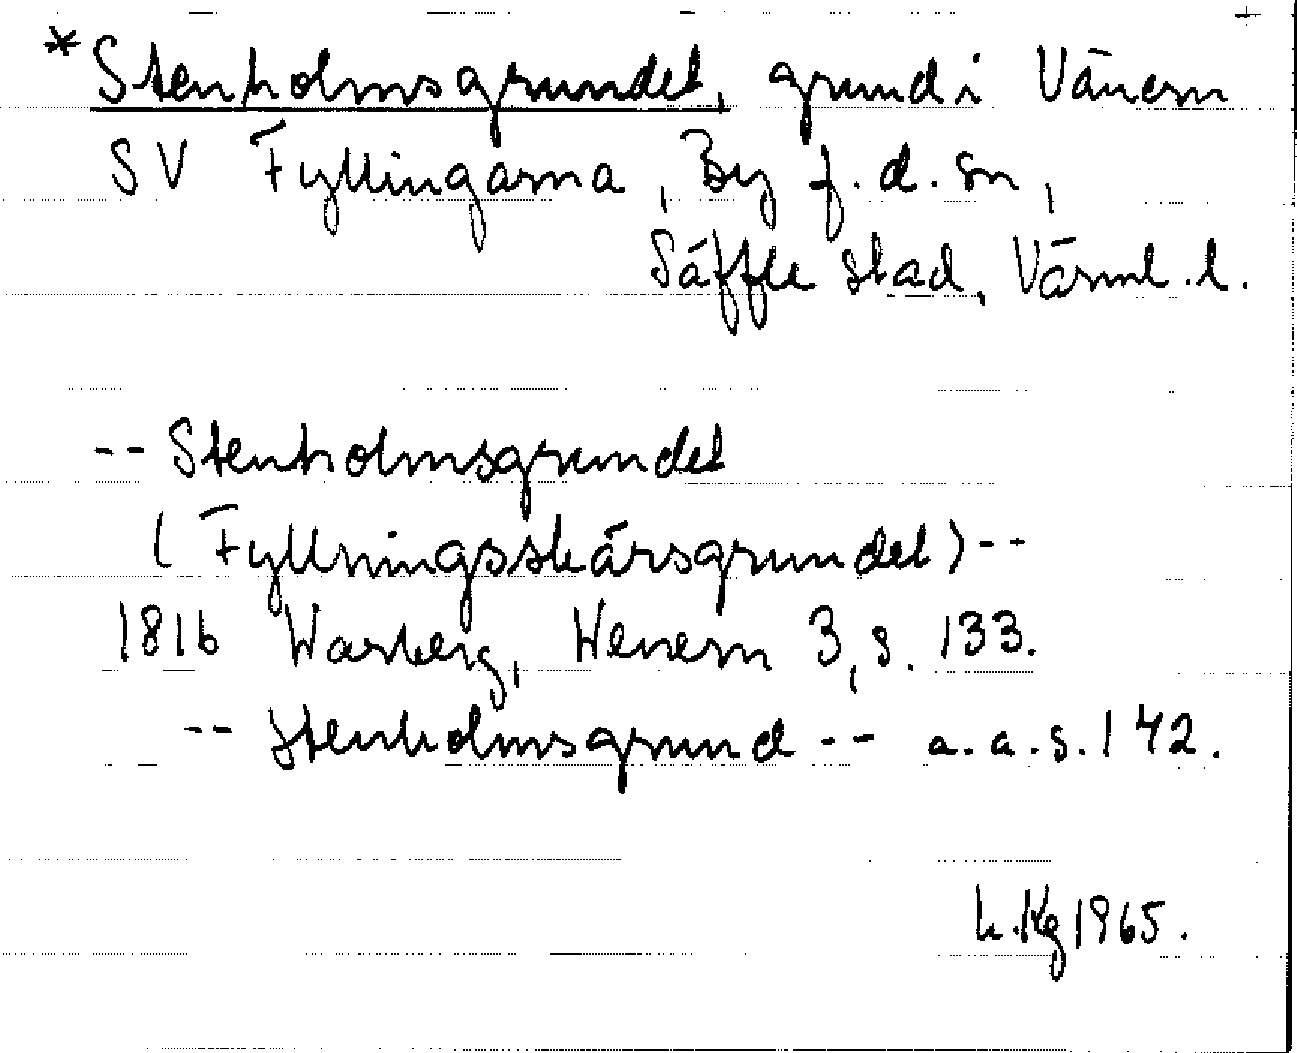 *Stenholmsgrundet, grund i Vänern
SV Fyllingarna, By f.d. sn,
Säffle stad, Värml. l.
-- Stenholmsgrundet
(Fyllningsskärsgrundet) --
1816 Warberg, Wenern 3, s. 133.
-- Stenholmsgrund -- a.a.s. 142.
L. Kg 1965.